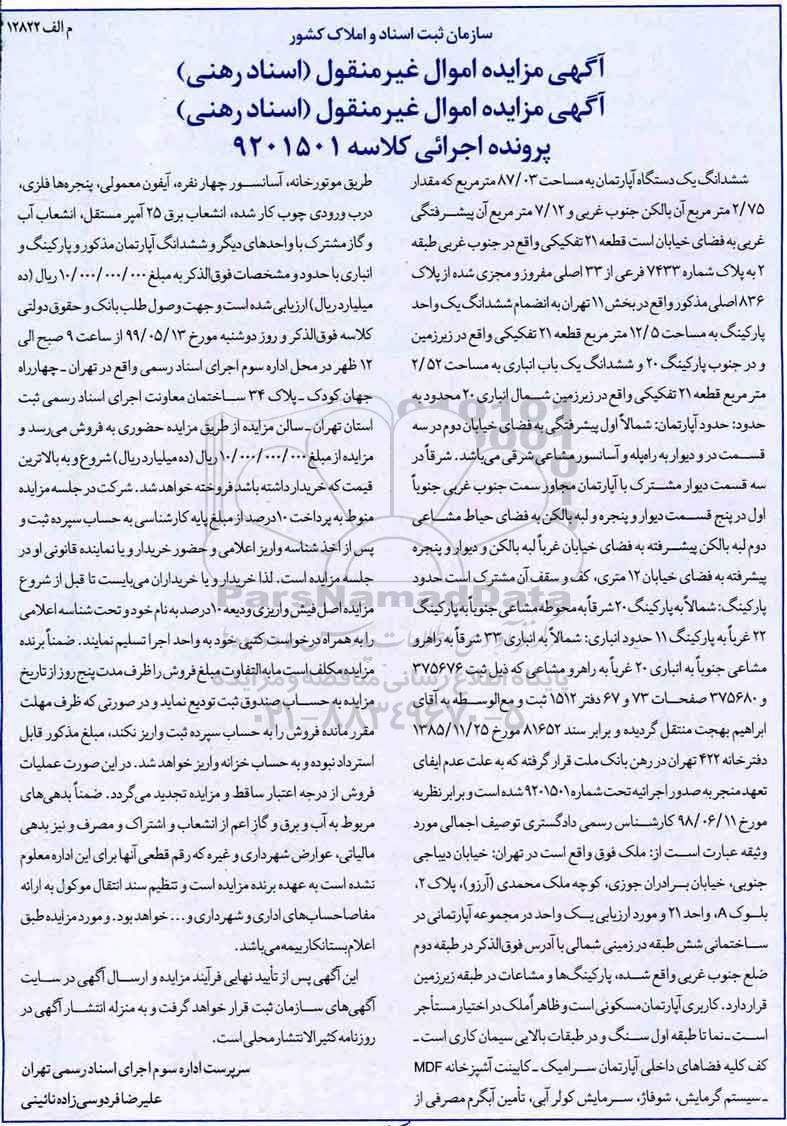 م الف ۱۲۸۲۲
سازمان ثبت اسناد و املاک کشور
آگهی مزایده اموال غیرمنقول (اسناد رهنی)
آگهی مزایده اموال غیرمنقول (اسناد رهنی)
پرونده اجرائی کلاسه ۹۲۰۱۵۰۱
ششدانگ یک دستگاه آپارتمان به مساحت ۸۷/۰۳ مترمربع که مقدار
۲/۷۵ متر مربع آن بالکن جنوب غربی و ۷/۱۲ متر مربع آن پیشــرفتگی
غربی به فضای خیابان است قطعه ۲۱ تفکیکی واقع در جنوب غربی طبقه
۲ به پلاک شماره ۷۴۳۳ فرعی از ۳۳ اصلی مفروز و مجزی شده از پلاک
۸۳۶ اصلی مذکور واقع در بخش ۱۱ تهران به انضمام ششدانگ یک واحد
پارکینگ به مساحت ۱۲/۵ متر مربع قطعه ۲۱ تفکیکی واقع در زیرزمین
و در جنوب پارکینگ ۲۰ و ششدانگ یک باب انباری به مساحت ۲/۵۲
متر مربع قطعه ۲۱ تفکیکی واقع در زیرزمین شــمال انباری ۲۰ محدود به
حدود: حدود آپارتمان: شمالاً اول پیشرفتگی به فضای خیابان دوم در سه
قسمت در و دیوار به راه‌پله و آسانسور مشاعی شرقی می‌باشد. شرقاً در
سه قسمت دیوار مشترک با آپارتمان مجاور سمت جنوب غربی جنوباً
اول در پنج قسمت دیوار و پنجره و لبه بالکن به فضای حیاط مشــاعی
دوم لبه بالکن پیشــرفته به فضای خیابان غرباً لبه بالکن و دیوار و پنجره
پیشرفته به فضای خیابان ۱۲ متری، کف و سقف آن مشترک است حدود
پارکینگ: شمالاً به پارکینگ ۲۰ شرقاً به محوطه مشاعی جنوباً به پارکینگ
۲۲ غرباً به پارکینگ ۱۱ حدود انباری: شمالاً به انباری ۳۳ شرقاً به راهرو
مشاعی جنوباً به انباری ۲۰ غرباً به راهرو مشاعی که ذیل ثبت ۳۷۵۶۷۶
و ۳۷۵۶۸۰ صفحــات ۷۳ و ۶۷ دفتر ۱۵۱۲ ثبت و مع‌الوســطه به آقای
ابراهیم بهجت منتقل گردیده و برابر سند ۸۱۶۵۲ مورخ ۱۳۸۵/۱۱/۲۵
دفترخانه ۴۲۲ تهران در رهن بانک ملت قرار گرفته که به علت عدم ایفای
تعهد منجر به صدور اجرائیه تحت شماره ۹۲۰۱۵۰۱ شده است و برابر نظریه
مورخ ۹۸/۰۶/۱۱ کارشــناس رسمی دادگستری توصیف اجمالی مورد
وثیقه عبارت اســت از: ملک فوق واقع است در تهران: خیابان دیباجی
جنوبی، خیابان بــرادران جوزی، کوچه ملک محمدی (آرزو)، پلاک ۲،
بلــوک A، واحد ۲۱ و مورد ارزیابی یــک واحد در مجموعه آپارتمانی در
ساختمانی شش طبقه در زمینی شمالی با آدرس فوق‌الذکر در طبقه دوم
ضلع جنوب غربی واقع شــده، پارکینگ‌ها و مشاعات در طبقه زیرزمین
قرار دارد. کاربری آپارتمان مسکونی است و ظاهراً ملک در اختیار مستأجر
اســت ـ نما تا طبقه اول سنگ و در طبقات بالایی سیمان کاری است ـ
کف کلیه فضاهای داخلی آپارتمان ســرامیک ـ کابینت آشپزخانه MDF
ـ سیستم گرمایش، شوفاژ، ســرمایش کولر آبی، تأمین آبگرم مصرفی از
طریق موتورخانه، آسانســور چهار نفره، آیفون معمولی، پنجره‌ها فلزی،
درب ورودی چوب کار شده، انشعاب برق ۲۵ آمپر مستقل، انشعاب آب
و گاز مشترک با واحدهای دیگر و ششدانگ آپارتمان مذکور و پارکینگ و
انباری با حدود و مشخصات فوق‌الذکر به مبلغ ۱۰/۰۰۰/۰۰۰/۰۰۰ ریال (ده
میلیارد ریال) ارزیابی شده است و جهت وصول طلب بانک و حقوق دولتی
کلاسه فوق‌الذکر و روز دوشنبه مورخ ۹۹/۰۵/۱۳ از ساعت ۹ صبح الی
۱۲ ظهر در محل اداره سوم اجرای اسناد رسمی واقع در تهران ـ چهارراه
جهان کودک ـ پلاک ۳۴ ســاختمان معاونت اجرای اسناد رسمی ثبت
استان تهران ـ سالن مزایده از طریق مزایده حضوری به فروش می‌رسد و
مزایده از مبلغ ۱۰/۰۰۰/۰۰۰/۰۰۰ ریال (ده میلیارد ریال) شروع و به بالاترین
قیمت که خریدار داشته باشد فروخته خواهد شد. شرکت در جلسه مزایده
منوط به پرداخت ۱۰درصد از مبلغ پایه کارشناسی به حساب سپرده ثبت و
پس از اخذ شناسه واریز اعلامی و حضور خریدار و یا نماینده قانونی او در
جلسه مزایده است. لذا خریدار و یا خریداران می‌بایست تا قبل از شروع
مزایده اصل فیش واریزی ودیعه ۱۰درصد به نام خود و تحت شناسه اعلامی
را به همراه درخواست کتبی خود به واحد اجرا تسلیم نمایند. ضمناً برنده
مزایده مکلف است مابه‌التفاوت مبلغ فروش را ظرف مدت پنج روز از تاریخ
مزایده به حســاب صندوق ثبت تودیع نماید و در صورتی که ظرف مهلت
مقرر مانده فروش را به حساب سپرده ثبت واریز نکند، مبلغ مذکور قابل
استرداد نبوده و به حساب خزانه واریز خواهد شد. در این صورت عملیات
فروش از درجه اعتبار ساقط و مزایده تجدید می‌گردد. ضمناً بدهی‌های
مربوط به آب و برق و گاز اعم از انشعاب و اشتراک و مصرف و نیز بدهی
مالیاتی، عوارض شهرداری و غیره که رقم قطعی آنها برای این اداره معلوم
نشده است به عهده برنده مزایده است و تنظیم سند انتقال موکول به ارائه
مفاصاحساب‌های اداری و شهرداری و... خواهد بود. و مورد مزایده طبق
اعلام بستانکار بیمه می‌باشد.
این آگهی پس از تأیید نهایی فرآیند مزایده و ارســال آگهی در ســایت
آگهی‌های سازمان ثبت قرار خواهد گرفت و به منزله انتشار آگهی در
روزنامه کثیرالانتشار محلی است.
سرپرست اداره سوم اجرای اسناد رسمی تهران
علیرضا فردوسی‌زاده نائینی
ParsNamadData
پایگاه اطلاع رسانی مناقصه و مزایده
۰۲۱-۸۸۳۴۹۶۷۰-۵